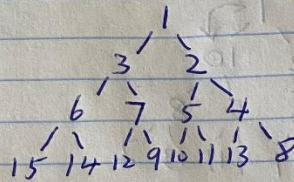 1
3 2
6 7 5 4
15 14 12 9 10 11 13 8